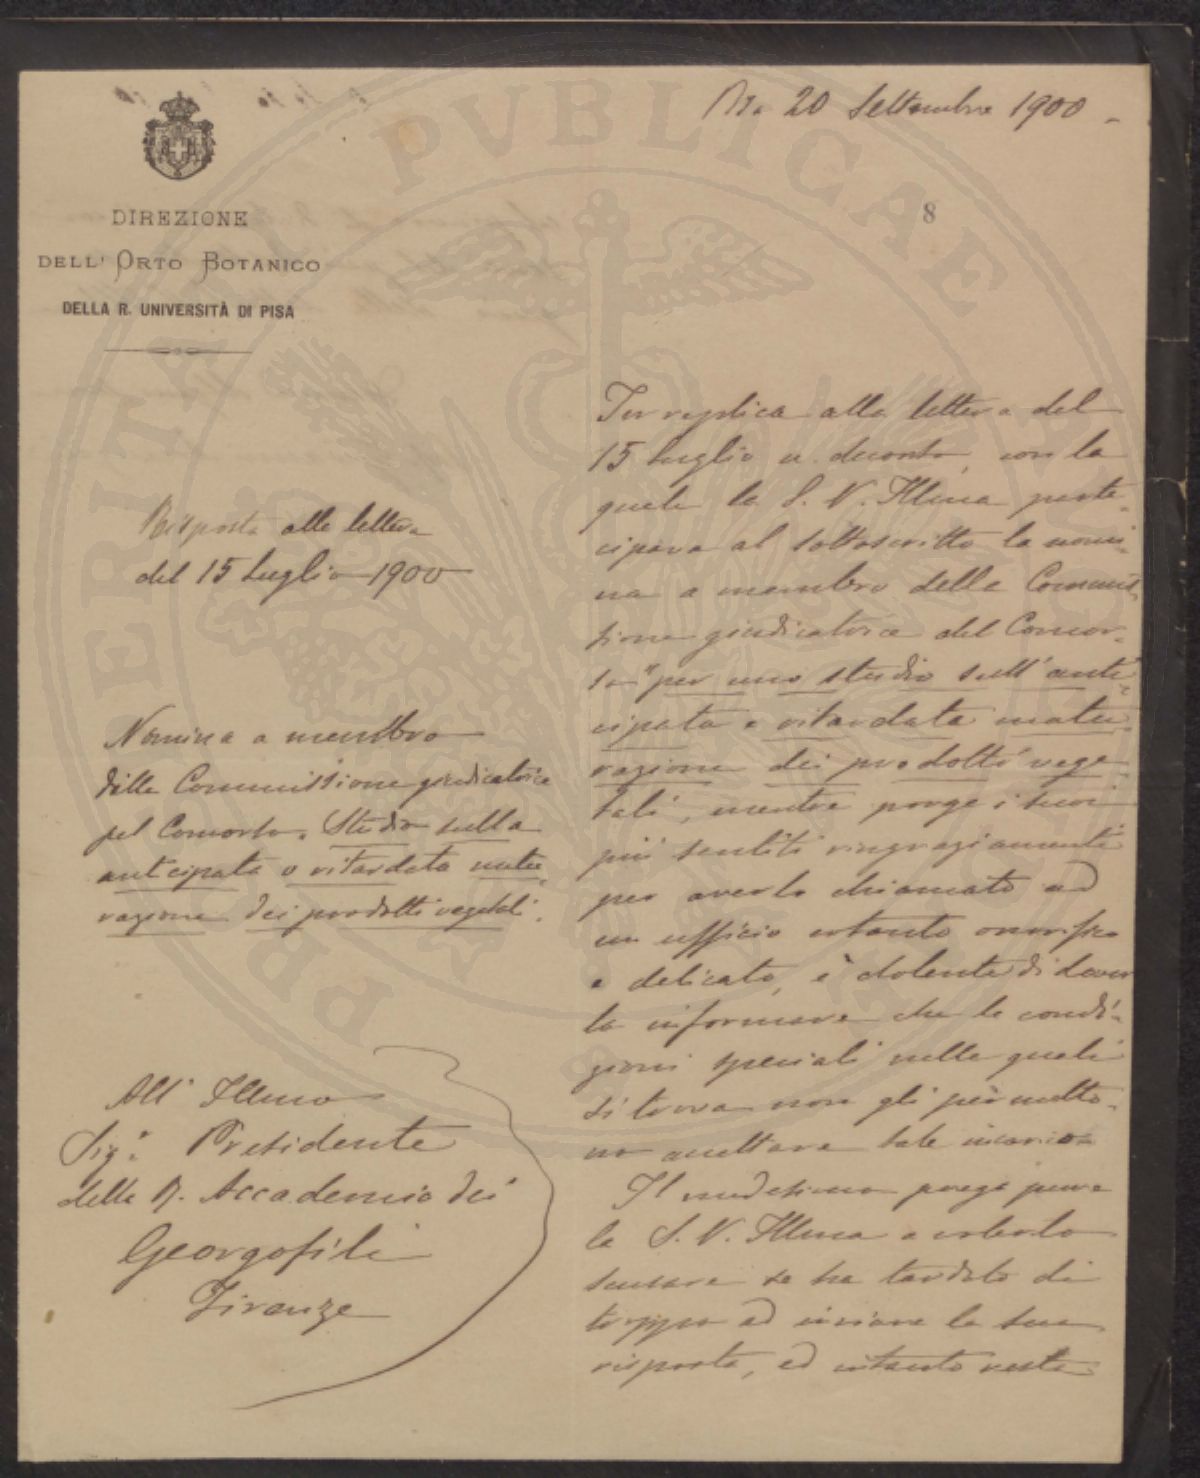 Pisa 20 Settembre 1900
8
DIREZIONE
DELL' ORTO BOTANICO
DELLA R. UNIVERSITÀ DI PISA
Risposta alla lettera
del 15 Luglio 1900
Nomina a membro
della Commissione giudicatrice
pel Concorso. Studio sulla
anticipata o ritardata matu-
razione dei prodotti vegetali.
All' Illmo
Sigr. Presidente
della R. Accademia dei
Georgofili
Firenze
In replica alla lettera del
15 Luglio u. decorso, con la
quale la S. V. Illma parte-
cipava al sottoscritto la nomi-
na a membro della Commis-
sione giudicatrice del Concor-
so "per uno studio sull'anti-
cipata e ritardata matu-
razione dei prodotti vege-
tali, mentre porge i suoi
più sentiti ringraziamenti
per averlo chiamato ad
un ufficio cotanto onorifico
e delicato, è dolente di dover
la informare che le condi-
zioni speciali nelle quali
si trova non gli permetto-
no accettare tale incarico
Il medesimo prega pure
la S. V. Illma a volerlo
scusare se ha tardato di
troppo ad inviare la sua
risposta, ed intanto resta
PERITATI PVBLICAE